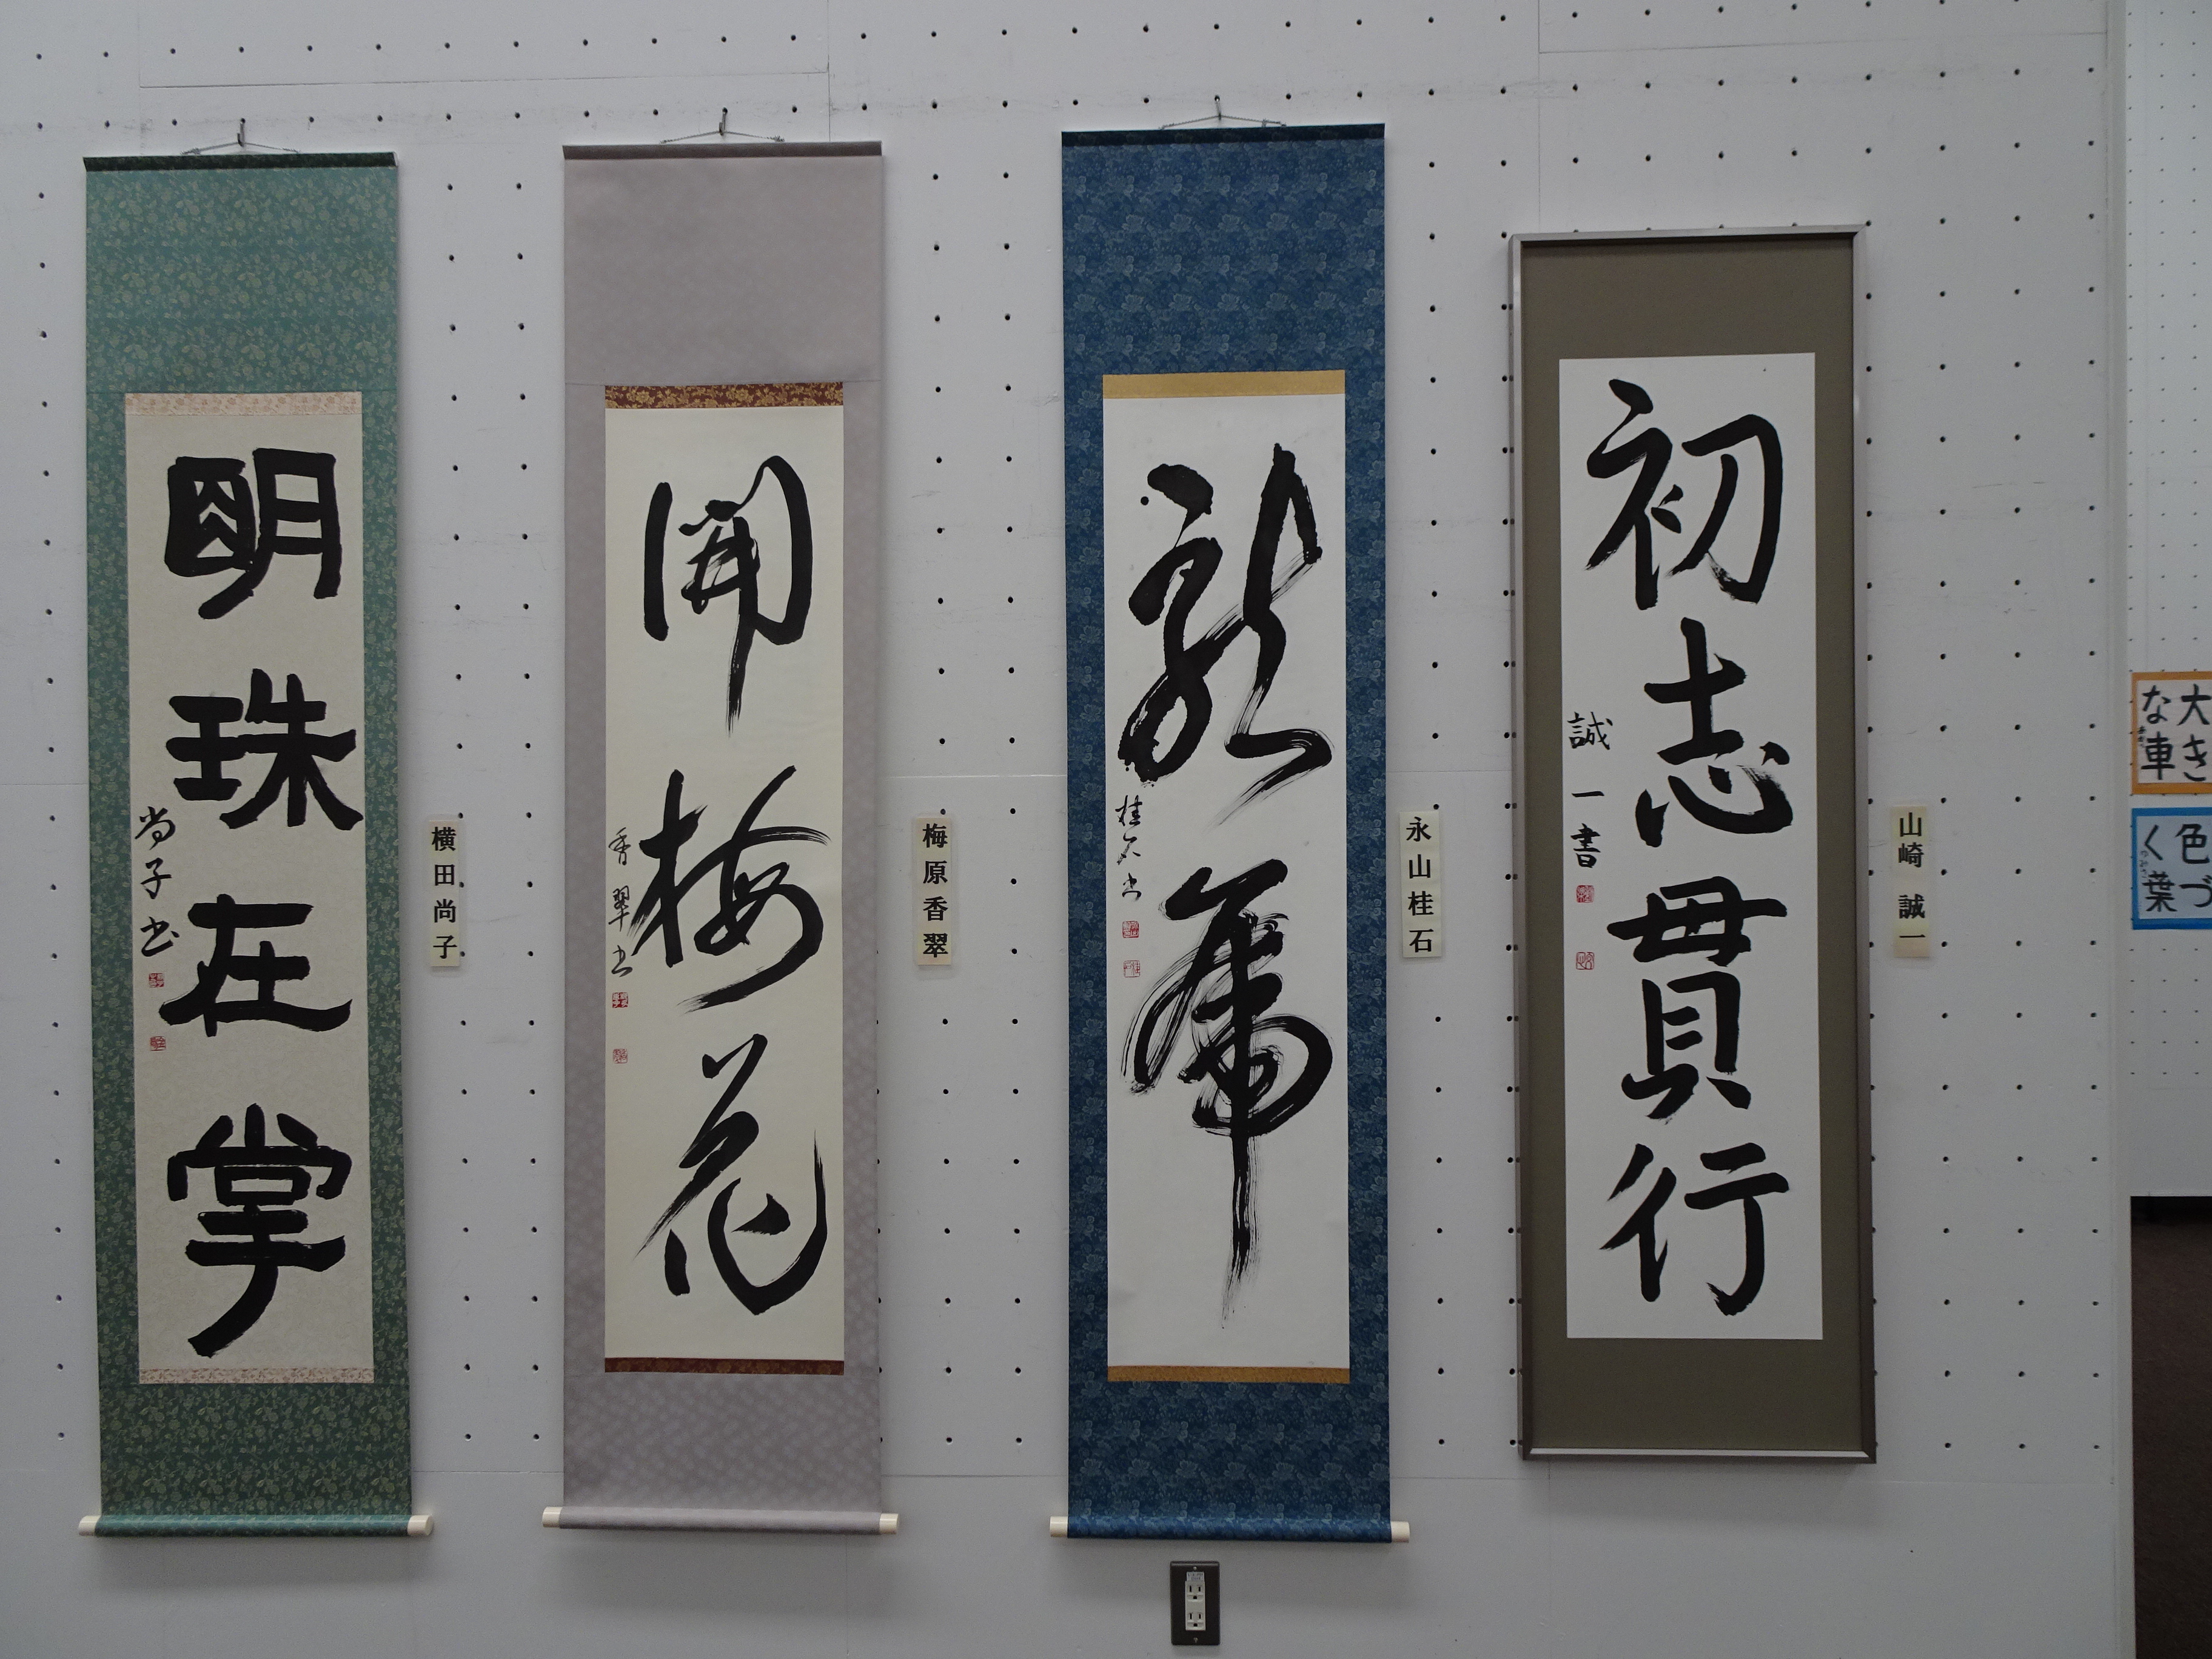 明珠在掌
尚子書
横田尚子
開梅花
香翠書
梅原香翠
龍虎
桂石書
永山桂石
初志貫行
誠一書
山崎誠一
大き
な車
色づ
く葉